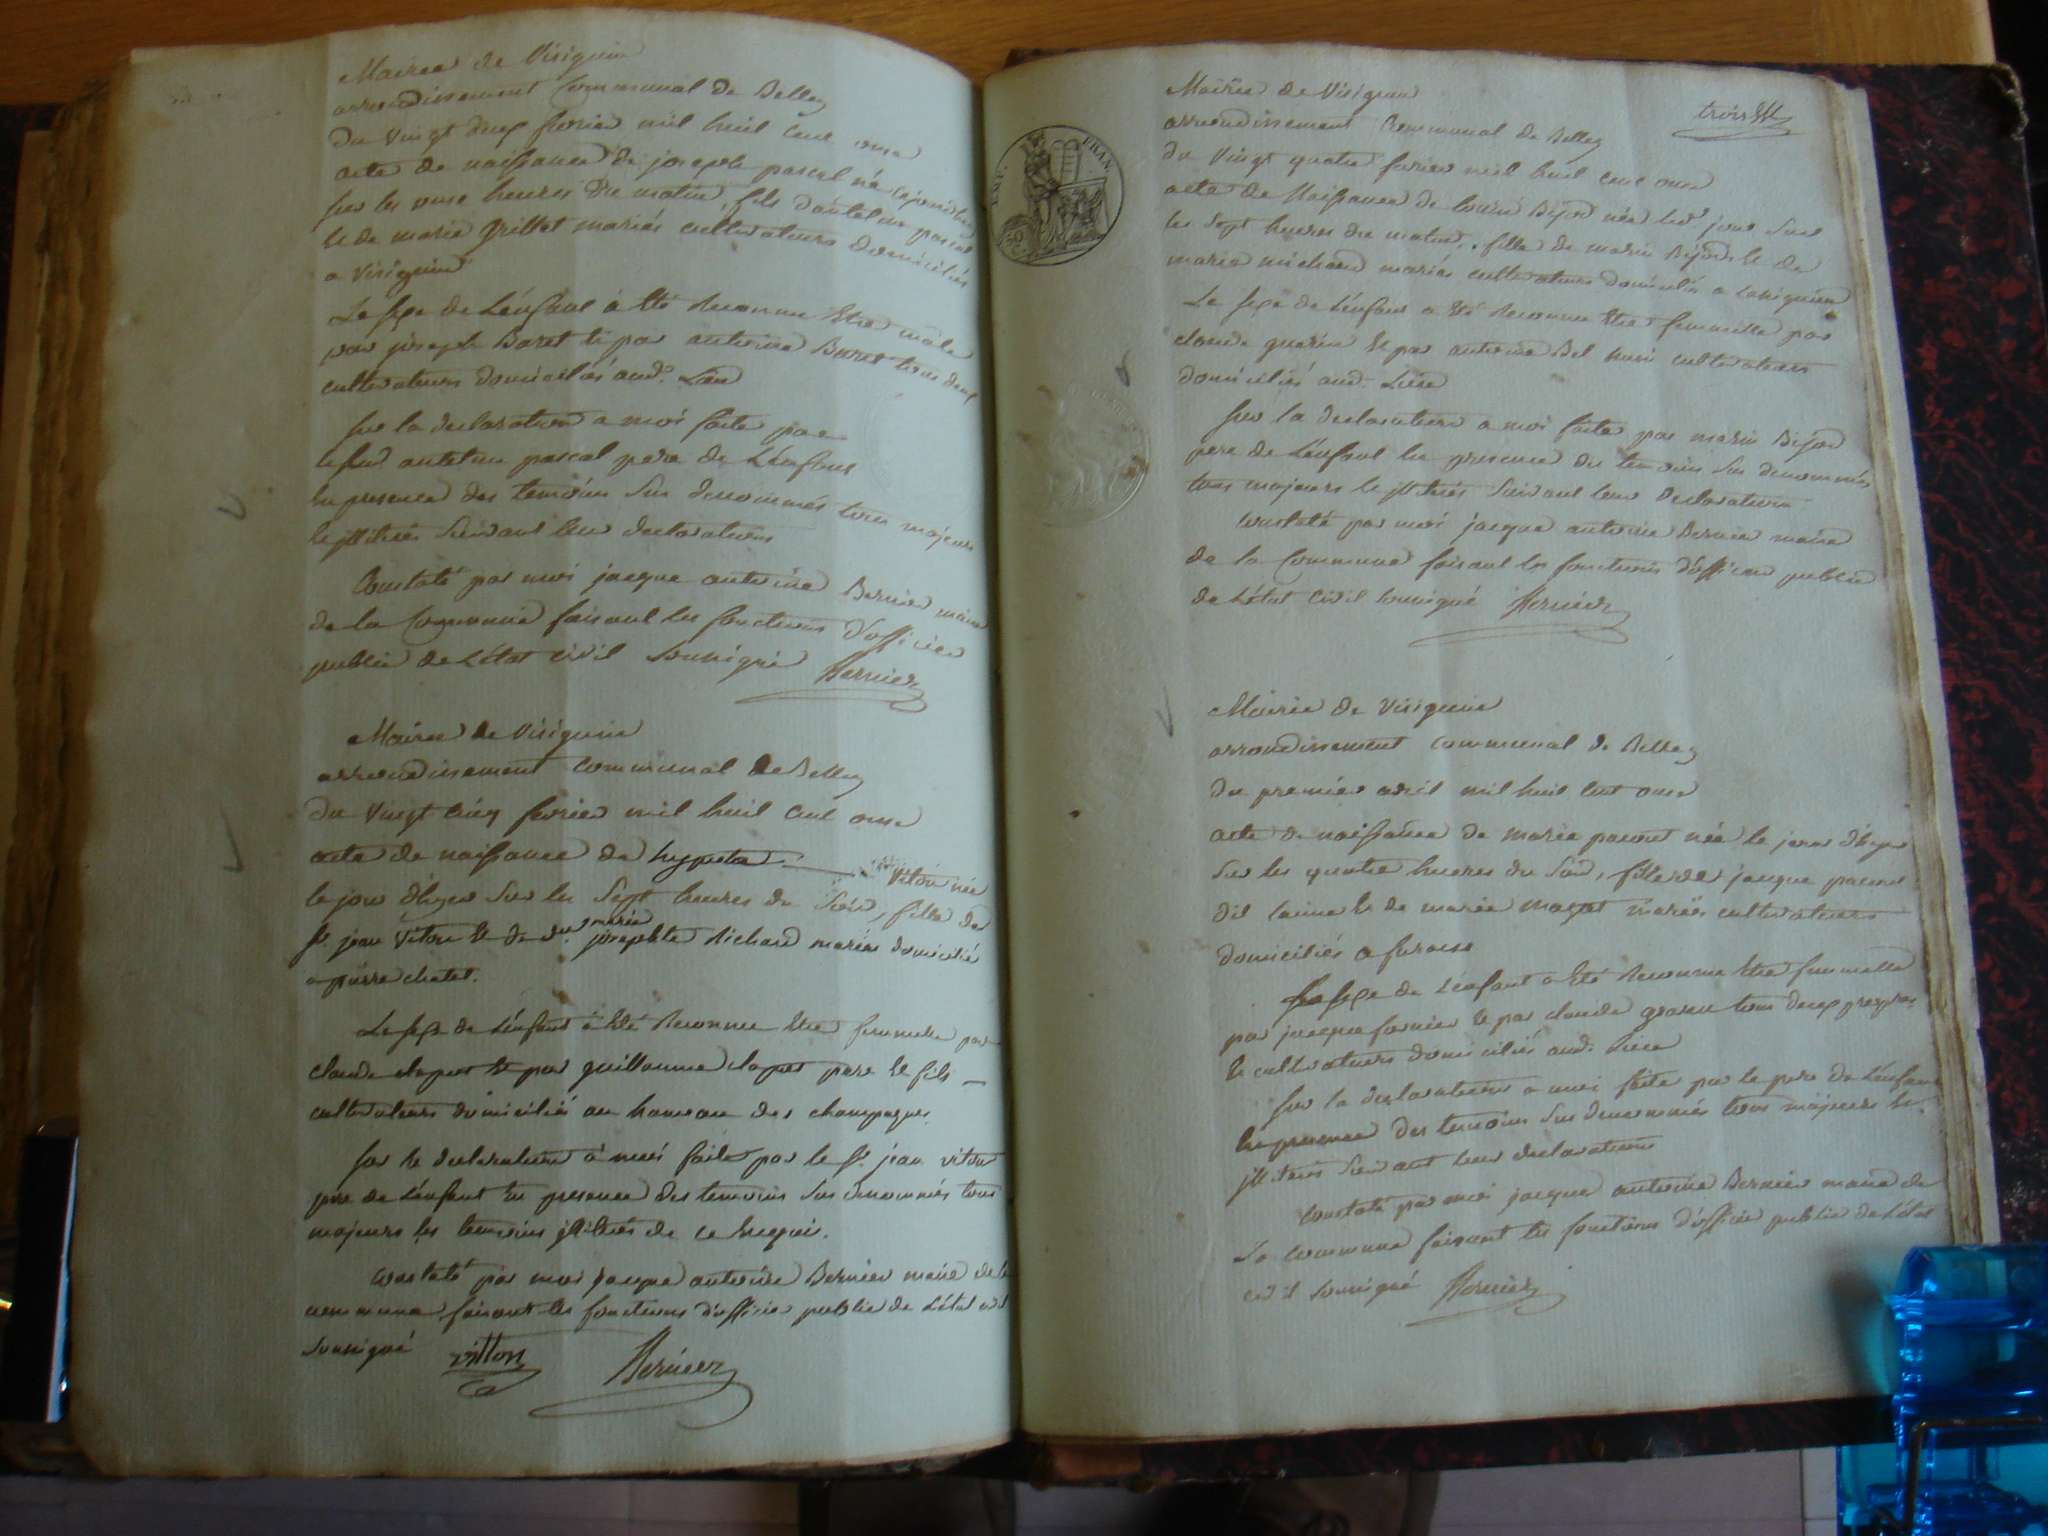 Mairie de Virignin
arrondissement Communal de Belley
du Vingt deux fevrier mil huit cent onze
acte de naissance de joseph pascal né
sur les onze heures du matin, fils d'antelme pascal
et de marie Grillet mariés cultivateurs domiciliés
a Virignin
Le sexe de L'enfant à Eté Reconnu Etre mâle
par joseph Baret et par antoine Baret tous deux
cultivateurs domiciliés aud. Lieu
Sur la declaration a moi faite par
antelme pascal pere de L'enfant
En presence des temoins Sus denommés tous majeurs
et illitrés Suivant leur declaration
Constaté par moi jacque antoine Bernier maire
de la Commune faisant les fonctions d'officier
public de L'état civil soussigné Bernier
Mairie de Virignin
arrondissement communal de Belley
du Vingt cinq fevrier mil huit cent onze
acte de naissance de hypolita Viton née
le jour d'hyer Sur les Sept heures du Soir, fille de
Sr. jean Viton et de de. marie josephte Richard mariés domiciliés
a pierre chatel.
Le sexe de L'enfant à Eté Reconnu Etre femmelle par
claude clapet et par guillaume clapet pere et fils
cultivateurs domiciliés au hameau des champagnes.
Sur la declaration à moi faite par le Sr. jean viton
pere de L'enfant En presence des temoins Sus denommés tous
majeurs les temoins illitrés de ce Enquis.
Constaté par moi jacque antoine Bernier maire de la
commune faisant les fonctions d'officier public de L'état civil
soussigné vitton Bernier
trois
EMP. FRAN.
Mairie de Virignin
arrondissement Communal de Belley
du Vingt quatre fevrier mil huit cent onze
acte de Naissance de louise Bijod née led. jour Sur
les Sept heures du matin, fille de marin Bijod et de
marie michaud mariés cultivateurs domiciliés a
Le sexe de L'enfant a Eté Reconnu Etre femmelle par
claude guerin et par antoine Bel cultivateurs
domiciliés aud. Lieu
Sur la declaration a moi faite par marin Bijod
pere de L'enfant En presence des temoins Sus denommés
tous majeurs et illitrés Suivant leur declaration.
Constaté par moi jacque antoine Bernier maire
de la Commune faisant les fonctions d'officier public
de L'état civil soussigné Bernier
Mairie de Virignin
arrondissement communal de Belley
du premier avril mil huit cent onze
acte de naissance de marie née le jour d'hyer
Sur les quatre heures du Soir, fille de jacque
dit et de marie mariés cultivateurs
domiciliés a
Le sexe de L'enfant a Eté Reconnu Etre femmelle
par jacque fornier et par claude tous deux
et cultivateurs domiciliés aud. Lieu
Sur la declaration a moi faite par le pere de L'enfant
En presence des temoins Sus denommés tous majeurs et
illitrés Suivant leur declaration
Constaté par moi jacque antoine Bernier maire de
La commune faisant les fonctions d'officier public de L'état
civil soussigné Bernier